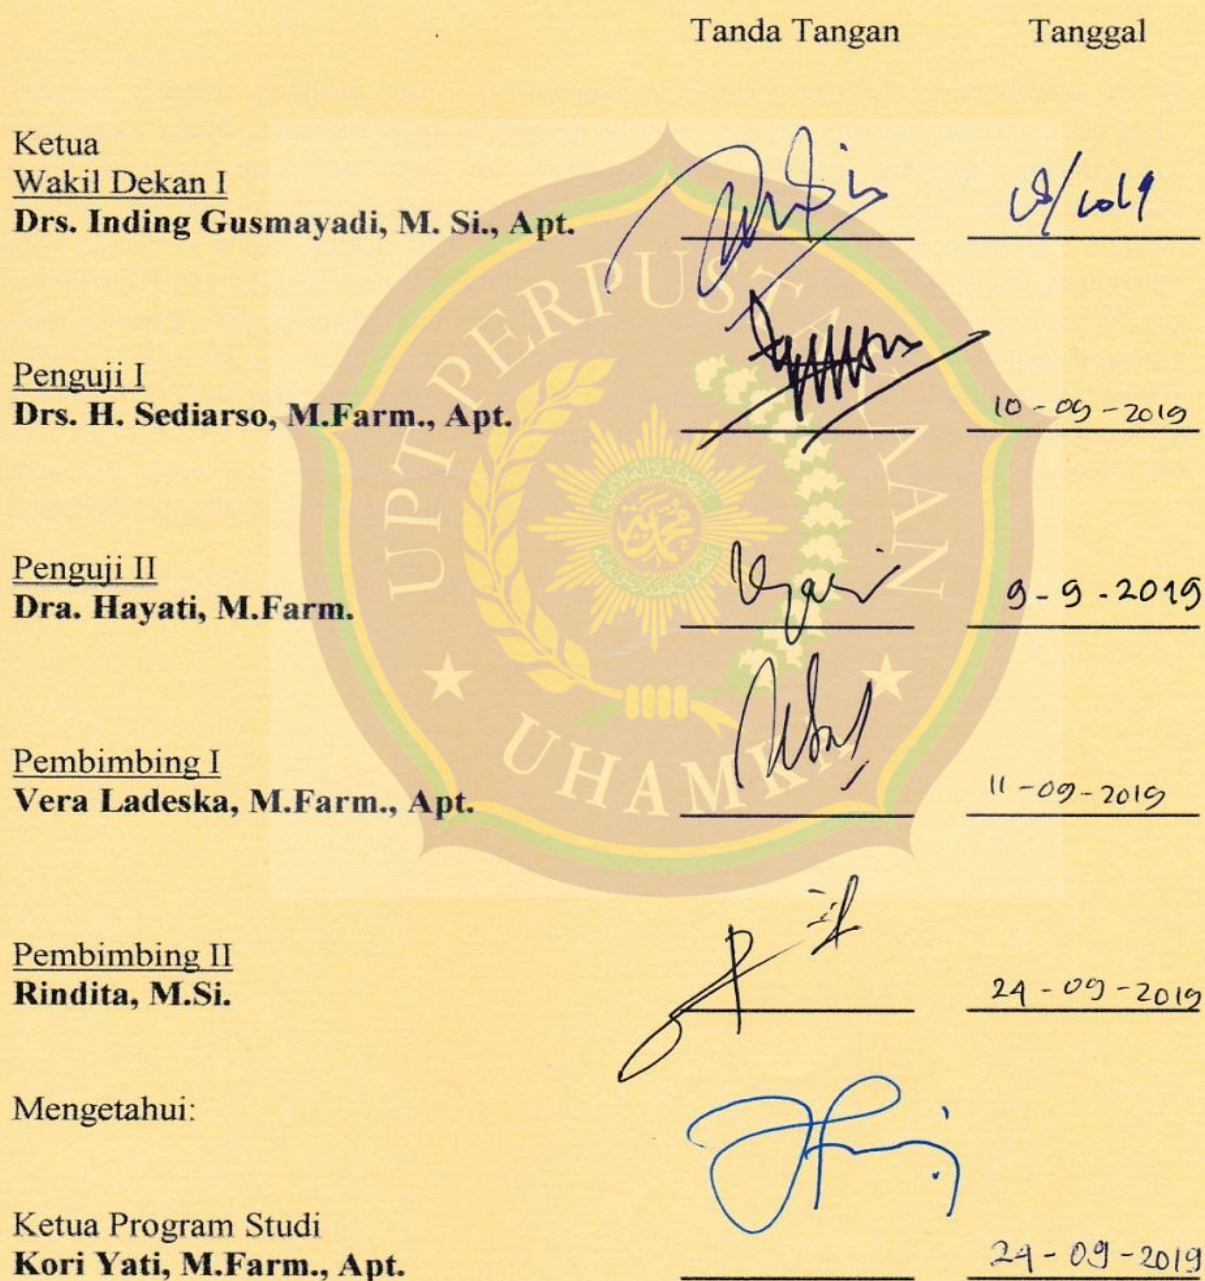 Tanda Tangan Tanggal
Ketua
Wakil Dekan I
Drs. Inding Gusmayadi, M. Si., Apt.
Penguji I
Drs. H. Sediarso, M.Farm., Apt. 10-09-2019
Penguji II
Dra. Hayati, M.Farm. 9-9-2019
Pembimbing I
Vera Ladeska, M.Farm., Apt. 11-09-2019
Pembimbing II
Rindita, M.Si. 24-09-2019
Mengetahui:
Ketua Program Studi
Kori Yati, M.Farm., Apt. 24-09-2019
UPT PERPUSTAKAAN
UHAMKA